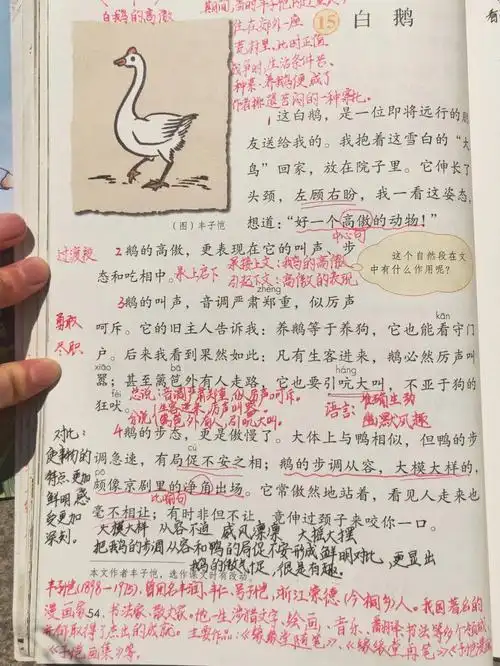 白鹅的高傲
15 白鹅
1这白鹅，是一位即将远行的朋
友送给我的。我抱着这雪白的“大
鸟”回家，放在院子里。它伸长了
头颈，左顾右盼，我一看这姿态，
想道：“好一个高傲的动物！”
中心句
（图）丰子恺
过渡段
2鹅的高傲，更表现在它的叫声、步
态和吃相中。
承上启下
承接上文：我鹅的高傲
引起下文：高傲的表现
这个自然段在文
中有什么作用呢？
zhèng
3鹅的叫声，音调严肃郑重，似厉声
kān
呵斥。它的旧主人告诉我：养鹅等于养狗，它也能看守门
勇敢
尽职
户。后来我看到果然如此：凡有生客进来，鹅必然厉声叫
xiāo bā háng
嚣；甚至篱笆外有人走路，它也要引吭大叫，不亚于狗的
fèi
狂吠。
总说：音调严肃郑重，似厉声呵斥。
生客进来，厉声叫嚣。
分说 篱笆外有人，引吭大叫。
语言：准确生动
幽默风趣
4鹅的步态，更是傲慢了。大体上与鸭相似，但鸭的步
调急速，有局促不安之相；鹅的步调从容，大模大样的，
颇像京剧里的净角出场。它常傲然地站着，看见人走来也
比喻句
毫不相让；有时非但不让，竟伸过颈子来咬你一口。
对比：
使事物的
特点更加
鲜明，感
受更加
深刻。
大模大样 从容不迫 威风凛凛 大摇大摆
把鹅的步调从容和鸭的局促不安形成鲜明对比，更显出
鹅的傲气十足，很是有趣。
本文作者丰子恺，选作课文时有改动。
丰子恺（1898—1975），曾用名丰润、丰仁，号子恺，浙江崇德（今桐乡）人。我国著名的
漫画家、书法家、散文家。他一生涉猎文学、绘画、音乐、翻译、书法等多个领域
54
取得了杰出的成就。主要作品：《缘缘堂随笔》、《缘缘堂再笔》、《子恺漫画》
《子恺画集》等。